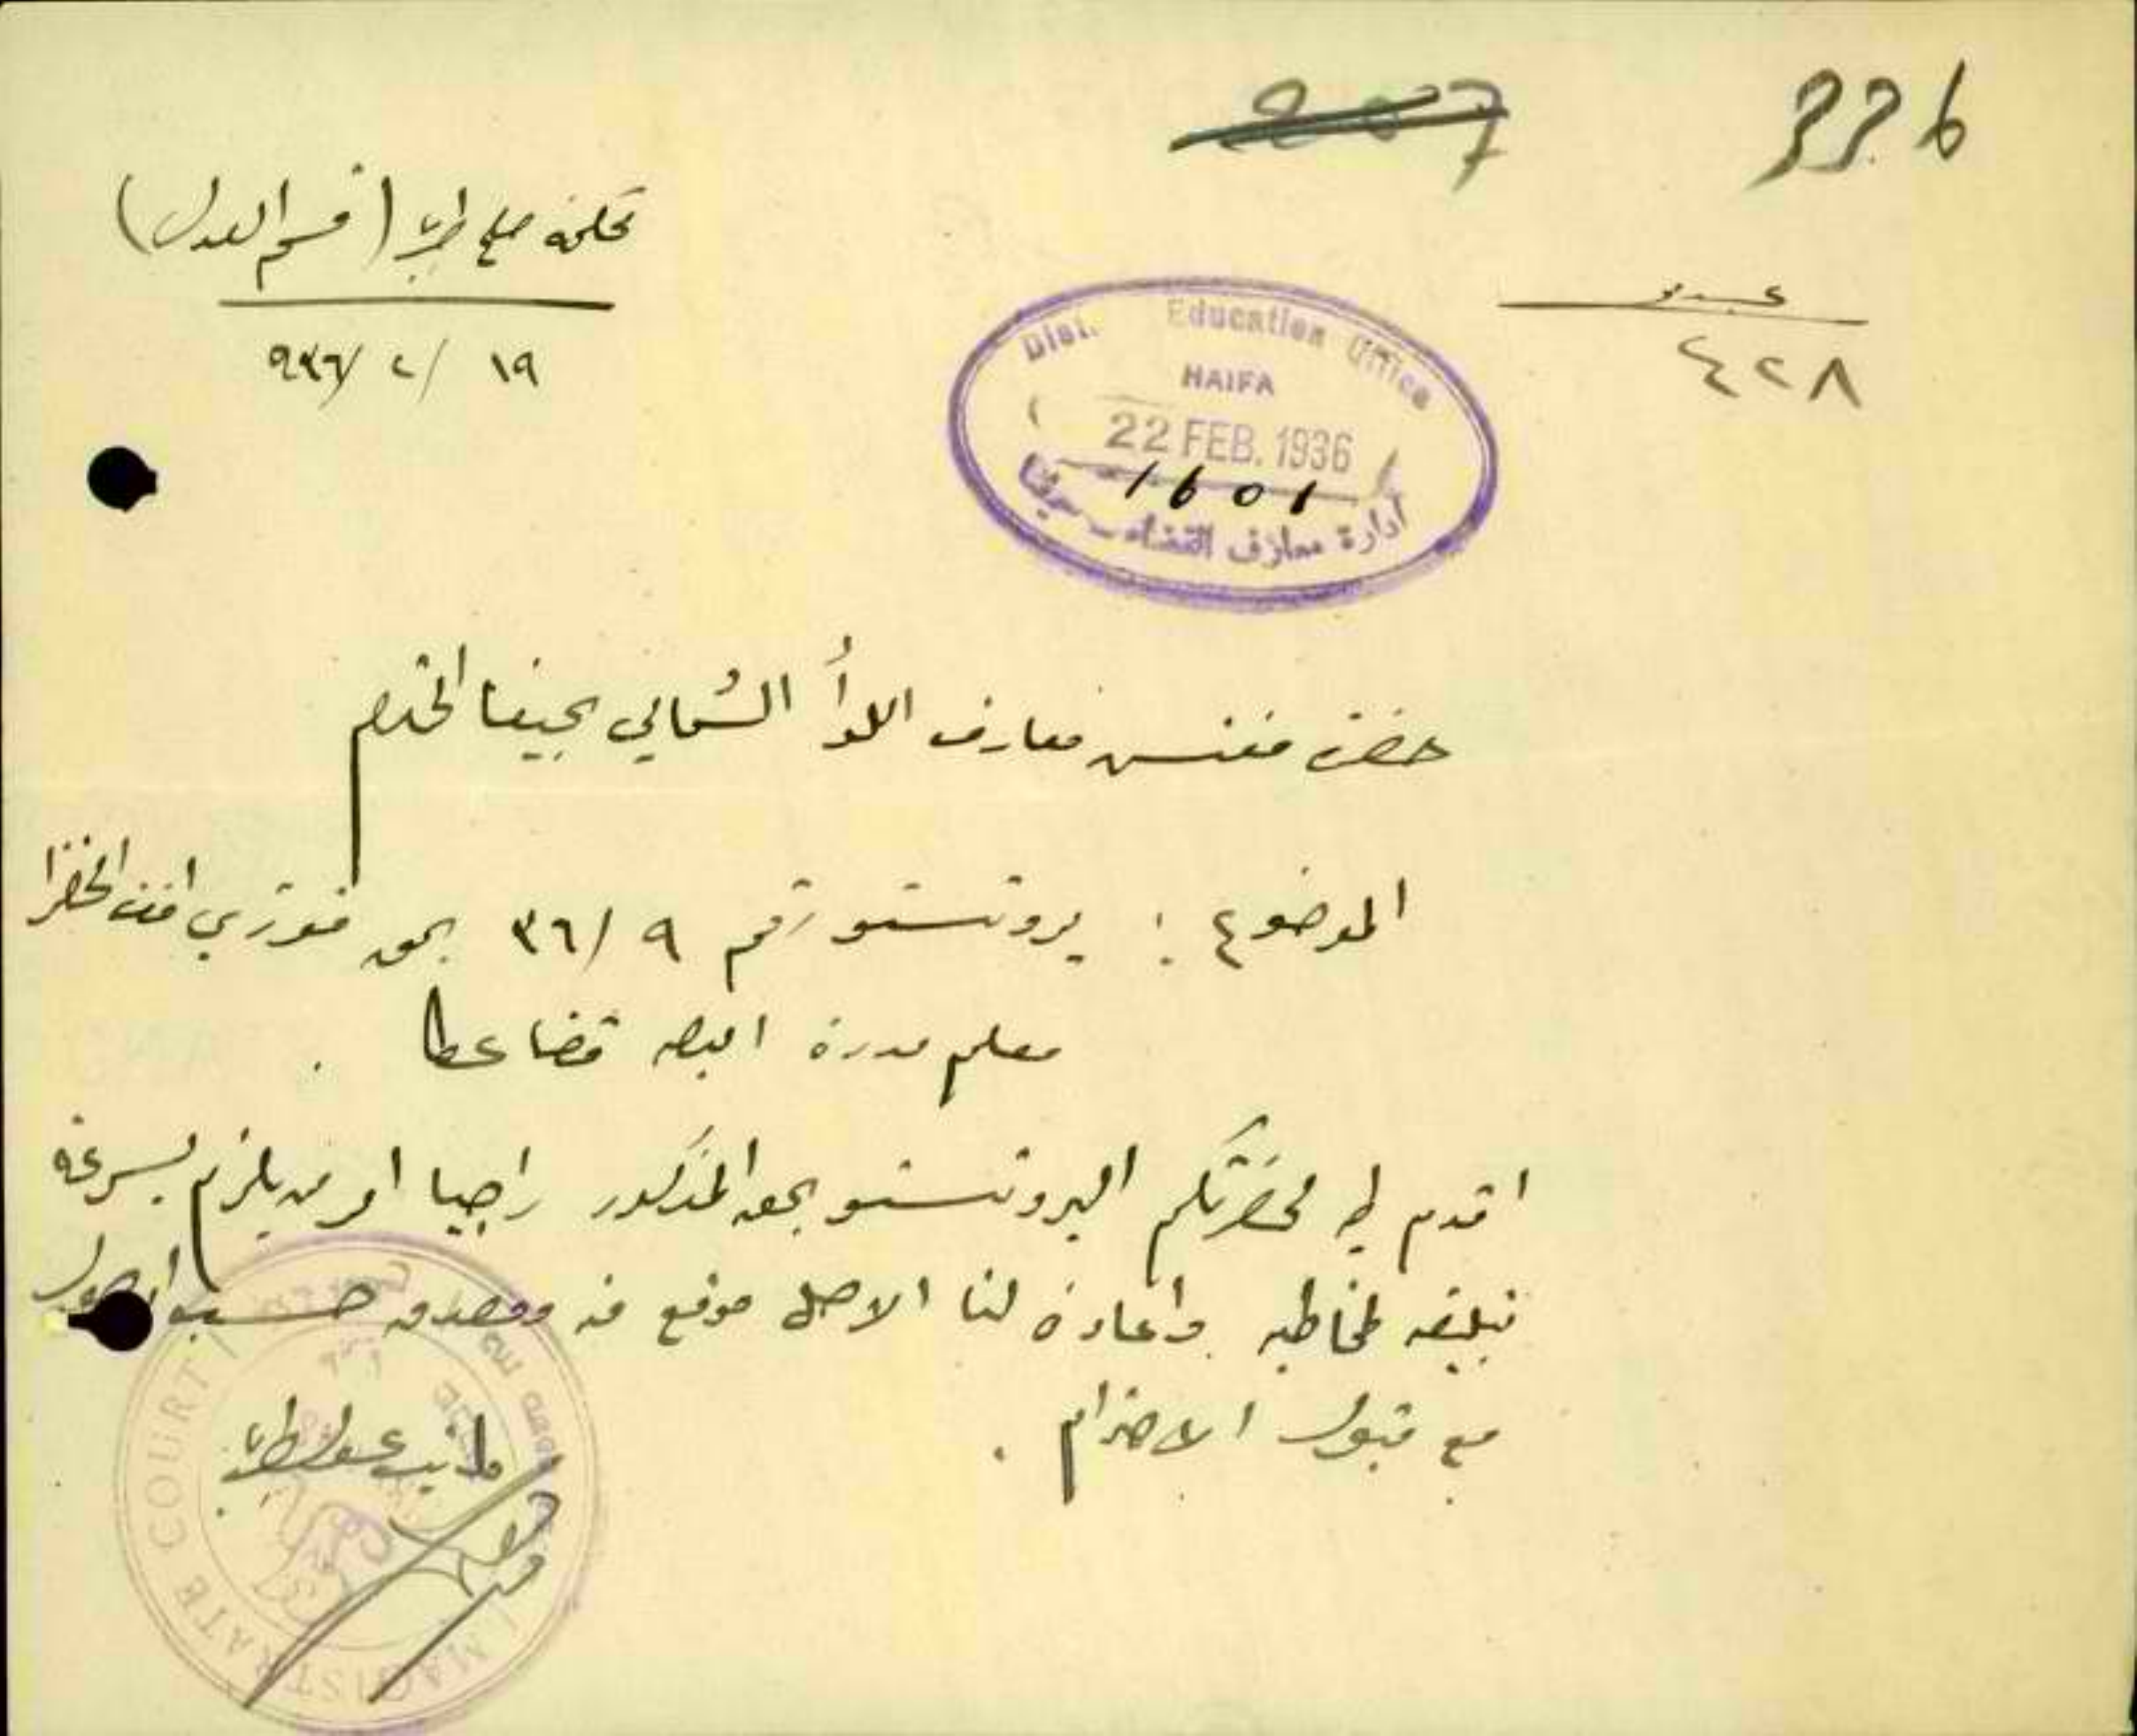 226
207
محكمة صلح طبريا (قسم العدل)
١٩ / ٢ / ٩٣٦
عدد
٤٢٨
Dist. Education Office
HAIFA
22 FEB. 1936
1601
ادارة معارف القضاء حيفا
حضرة مفتش معارف اللواء الشمالي بحيفا المحترم
الموضوع : بروتستو رقم ٩ / ٣٦ بحق فوزي افندي الخضرا
معلم مدرسة البصه قضا عكا .
اقدم لحضرتكم البروتستو بحق المذكور راجيا امر من يلزم بسرعة
تبليغه لمخاطبه واعادة لنا الاصل موقع منه ومصدق حسب الاصول
مع قبول الاحترام .
كاتب عدل طبريا
MAGISTRATE COURT